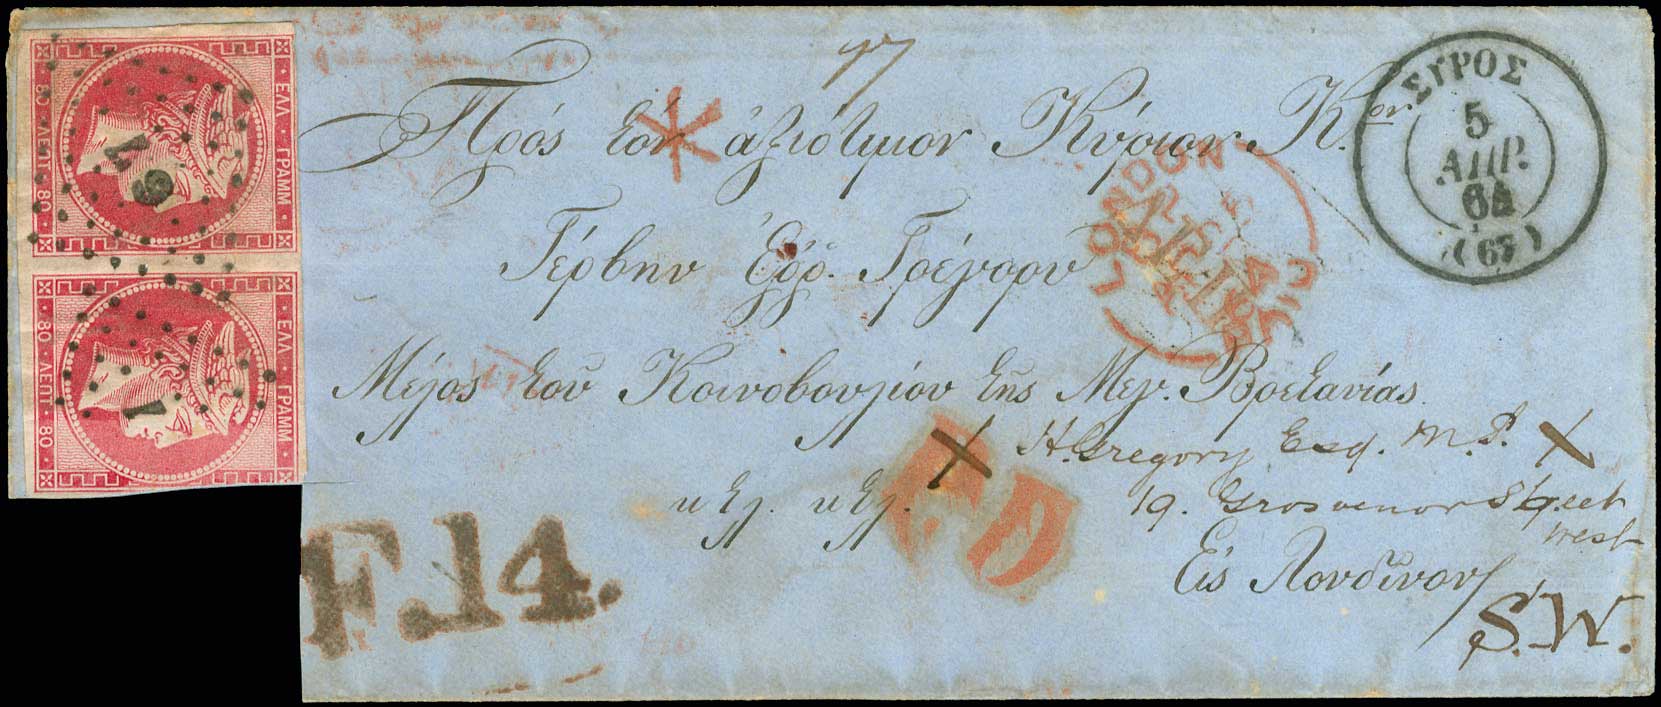 ΕΛΛ. ΓΡΑΜΜ.
80 ΛΕΠΤ. 80
67
ΕΛΛ. ΓΡΑΜΜ.
80 ΛΕΠΤ. 80
ΣΥΡΟΣ
5
ΑΠΡ.
64
(67)
Πρὸς τὸν ἀξιότιμον Κύριον Κον
Γέρβην Ἐδρ. Γρέγορυ
Μέλος τοῦ Κοινοβουλίου τῆς Μεγ. Βρετανίας
κτλ. κτλ.
LONDON
PD
H. Gregory Esq. M.P.
19. Grosvenor Street
West
Εἰς Λονδῖνον
S.W.
F.14.